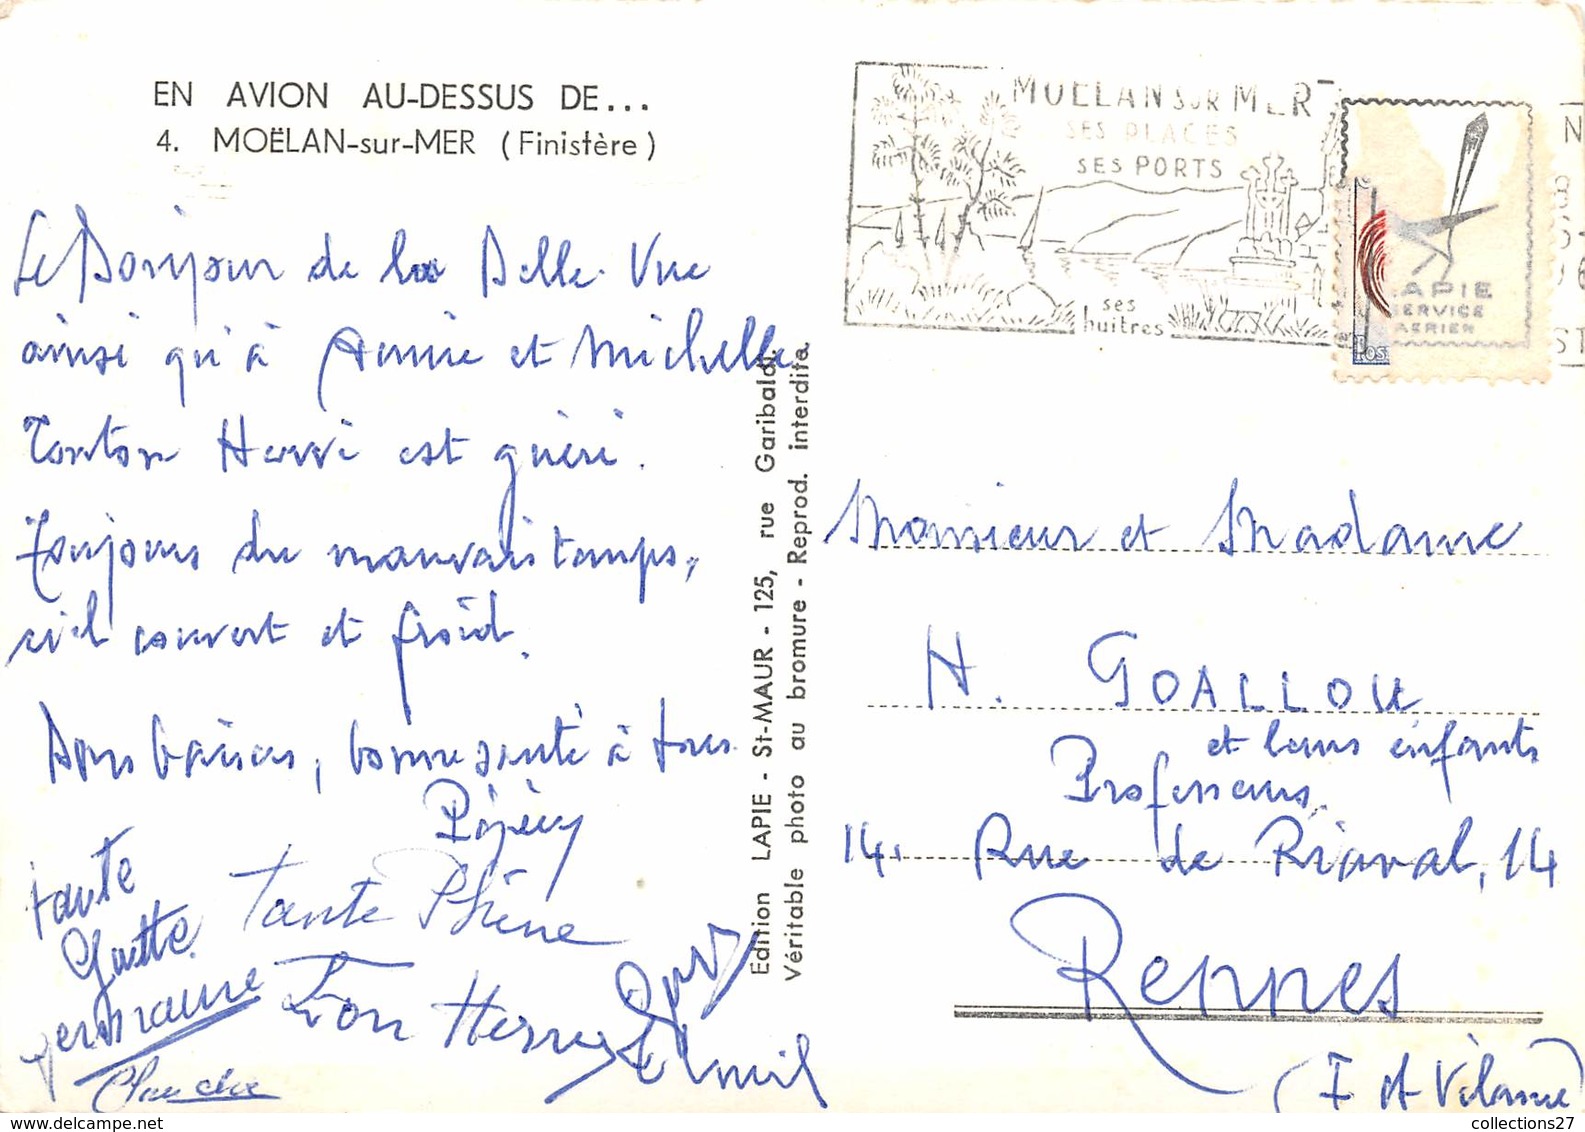 EN AVION AU-DESSUS DE...
4. MOËLAN-sur-MER (Finistère)
Le Bonjour de la Belle-Vue
ainsi qu'à Annie et Michelle
Tonton Hervé est guéri.
Toujours du mauvais temps,
ciel couvert et froid.
Bons baisers, bonne santé à tous.
Pépéuy
Tante
Guitte
Tante Phine
germaine
Ton Herve
Blanche
MOËLAN SUR MER
SES PLAGES
SES PORTS
ses
huitres
LAPIE
SERVICE
AERIEN
POS
Edition LAPIE - St-MAUR - 125, rue Garibaldi
Véritable photo au bromure - Reprod. interdite
Monsieur et Madame
H. GOALLOU
et leurs enfants
Professeurs.
14. Rue de Riaval, 14
Rennes
(I et Vilaine)
collections27